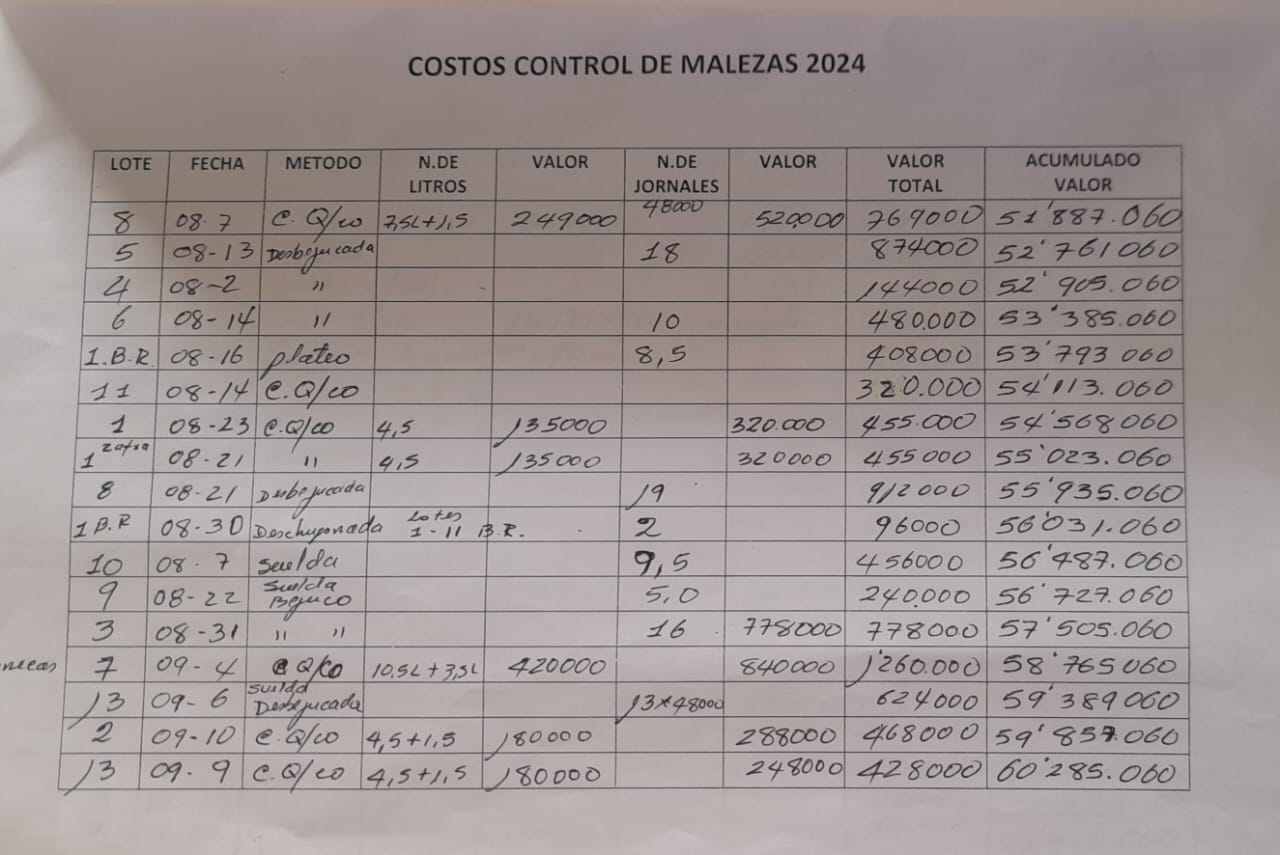 COSTOS CONTROL DE MALEZAS 2024
LOTE FECHA METODO N.DE LITROS VALOR N.DE JORNALES VALOR VALOR TOTAL ACUMULADO VALOR
8 08-7 C. Q/co 7,5L+1,5 249000 48000 520.000 769000 51'887.060
5 08-13 Desbejucada 18 874000 52'761060
4 08-2 " 144000 52'905.060
6 08-14 " 10 480.000 53'385.060
1.B.R 08-16 plateo 8,5 408000 53'793 060
11 08-14 C.Q/co 320.000 54'113.060
1 08-23 C.Q/co 4,5 135000 320.000 455.000 54'568060
1 zafra 08-21 " 4,5 135000 320000 455000 55'023.060
8 08-21 Desbejucada 19 912000 55'935.060
1 B.R 08-30 Deschuponada lotes 1-11 B.R. 2 96000 56'031.060
10 08-7 suelda 9,5 456000 56'487.060
9 08-22 suelda Bejuco 5,0 240.000 56'727.060
3 08-31 " " 16 778000 778000 57'505.060
7 09-4 C Q/co 10,5L+3,5L 420000 840000 1'260.000 58'765060
13 09-6 suelda Desbejucada 13x48000 624000 59'389060
2 09-10 C.Q/co 4,5+1,5 180000 288000 468000 59'857.060
13 09-9 C.Q/co 4,5+1,5 180000 248000 428000 60'285.060